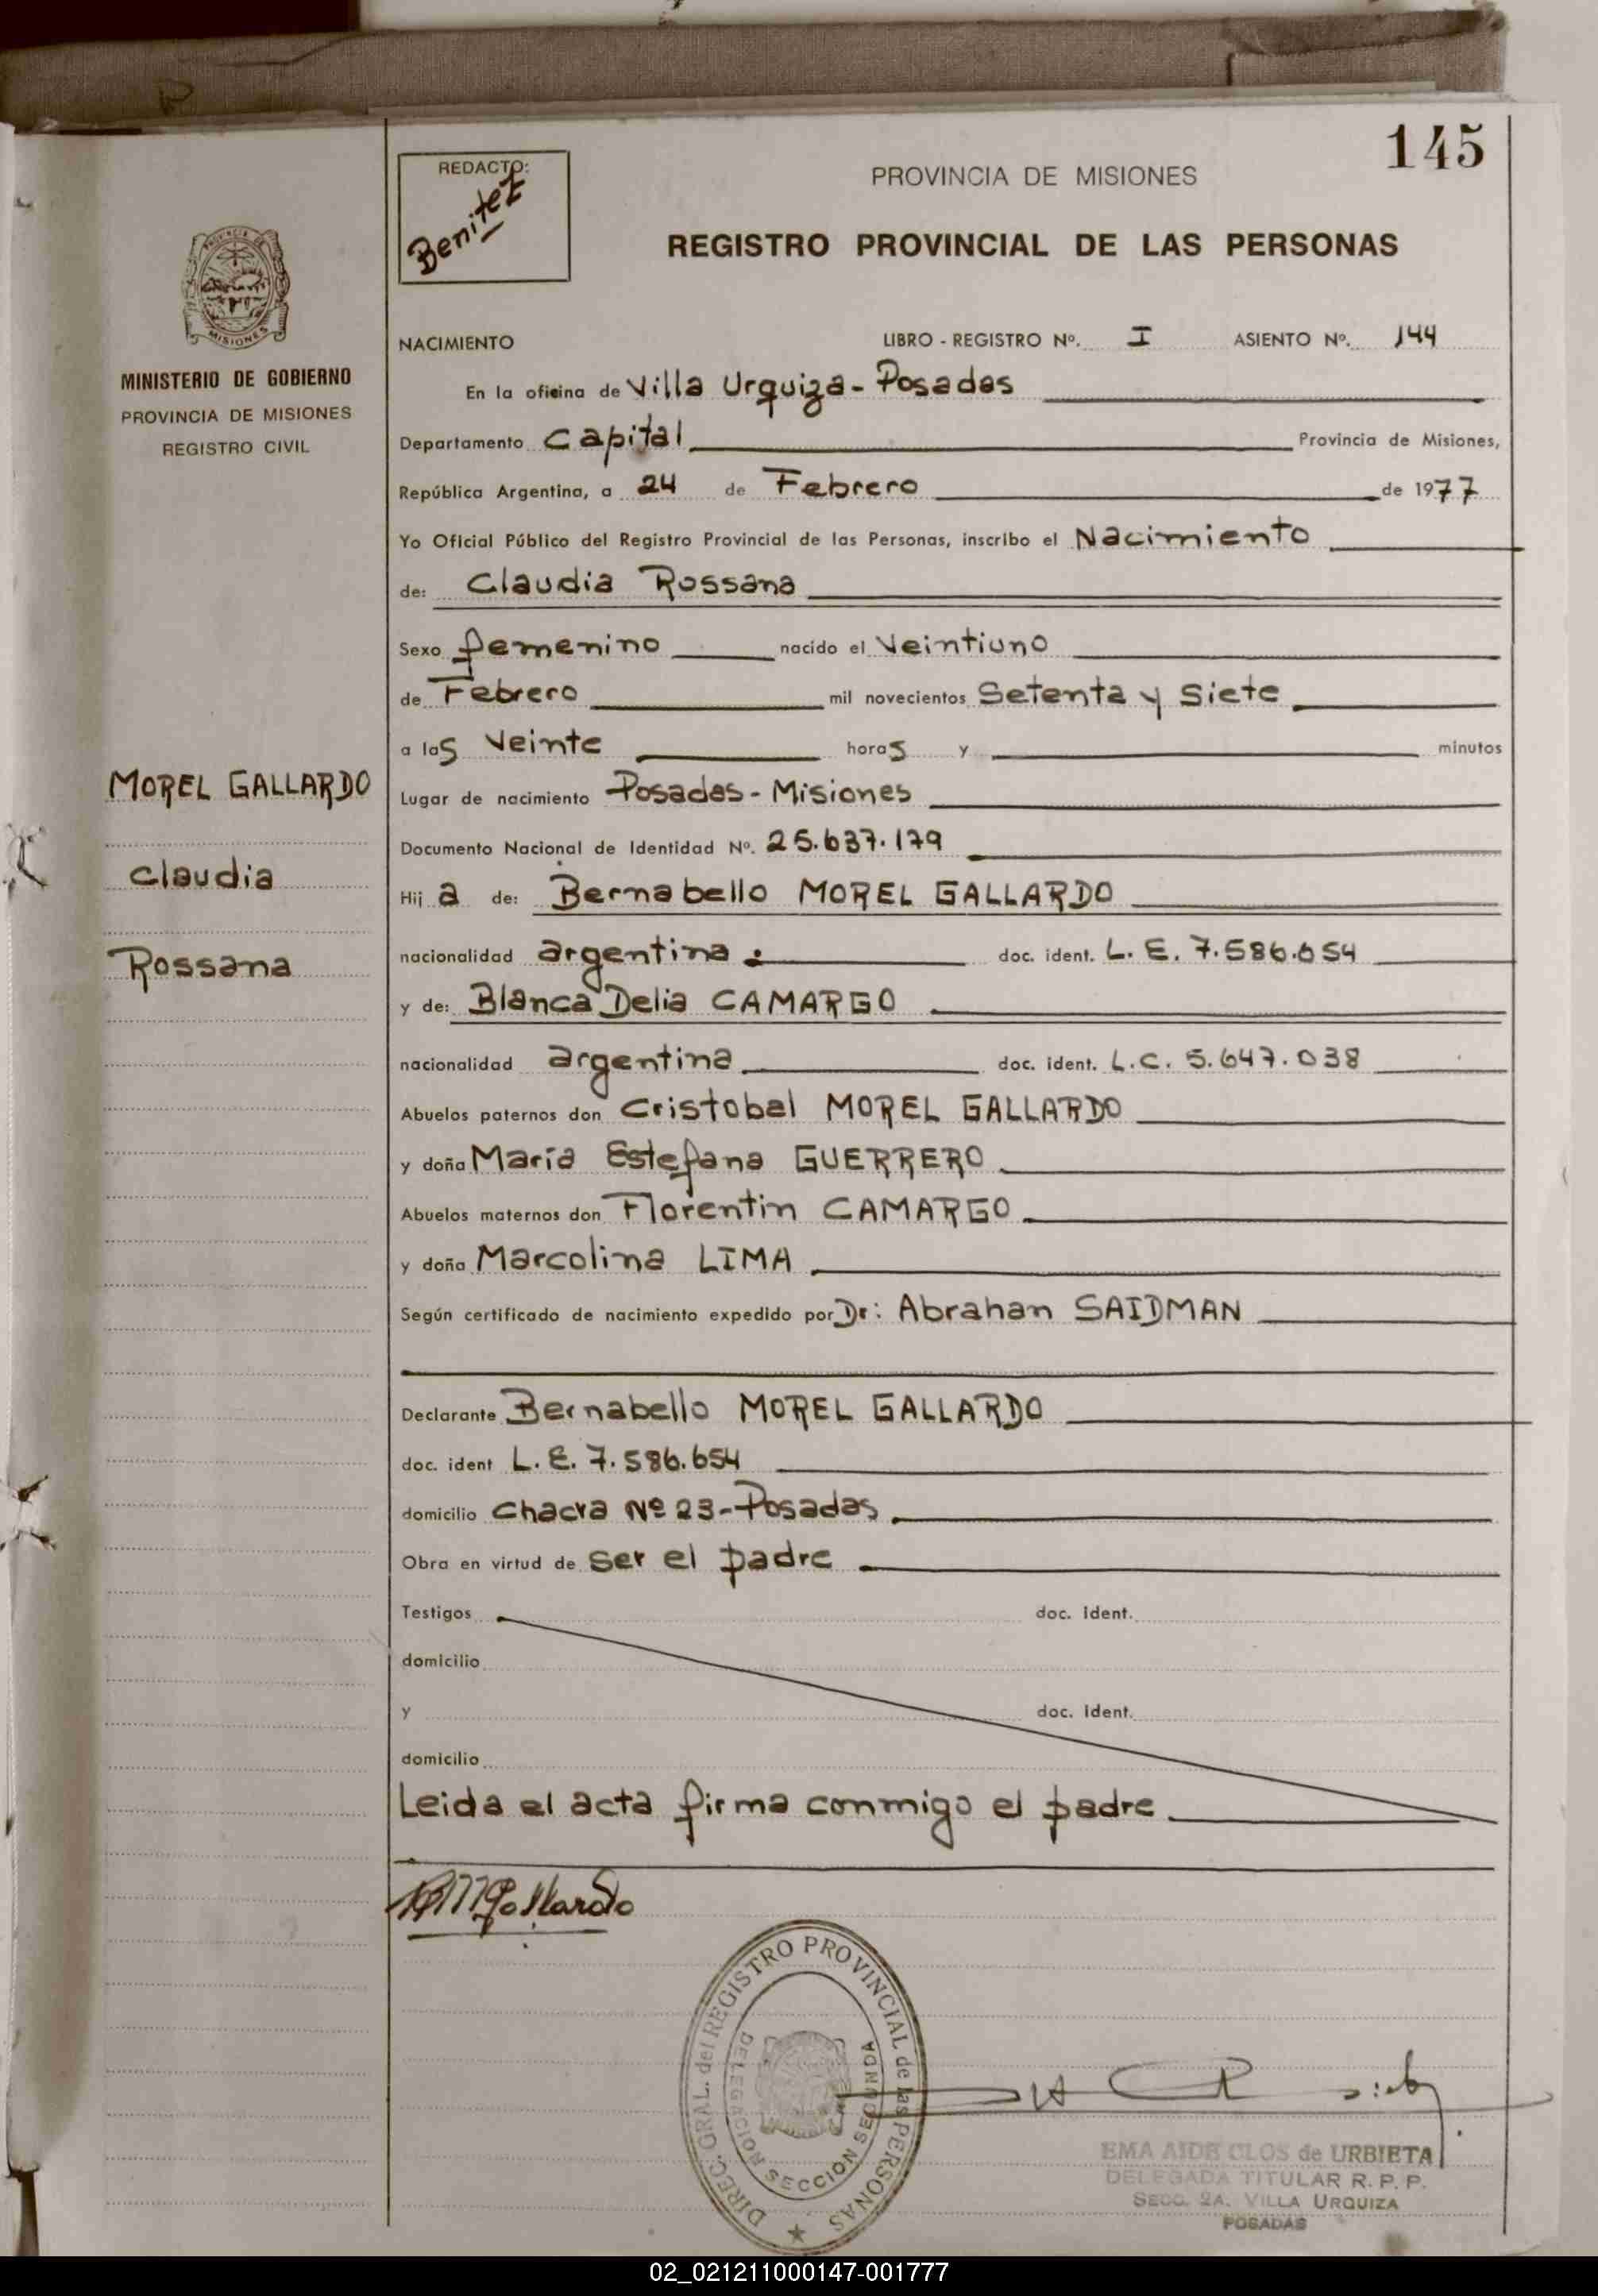 145
REDACTO:
Benitez
PROVINCIA DE MISIONES
REGISTRO PROVINCIAL DE LAS PERSONAS
PROVINCIA DE
MISIONES
MINISTERIO DE GOBIERNO
PROVINCIA DE MISIONES
REGISTRO CIVIL
MOREL GALLARDO
Claudia
Rossana
NACIMIENTO LIBRO - REGISTRO Nº. I ASIENTO Nº. 144
En la oficina de Villa Urquiza - Posadas
Departamento Capital Provincia de Misiones,
República Argentina, a 24 de Febrero de 1977
Yo Oficial Público del Registro Provincial de las Personas, inscribo el Nacimiento
de: Claudia Rossana
Sexo femenino nacido el Veintiuno
de Febrero mil novecientos Setenta y Siete
a las Veinte horas y minutos
Lugar de nacimiento Posadas - Misiones
Documento Nacional de Identidad Nº. 25.637.179
Hij a de: Bernabello MOREL GALLARDO
nacionalidad argentina doc. ident. L. E. 7.586.654
y de: Blanca Delia CAMARGO
nacionalidad argentina doc. ident. L.C. 5.647.038
Abuelos paternos don Cristobal MOREL GALLARDO
y doña María Estefana GUERRERO
Abuelos maternos don Florentin CAMARGO
y doña Marcolina LIMA
Según certificado de nacimiento expedido por Dr: Abrahan SAIDMAN
Declarante Bernabello MOREL GALLARDO
doc. ident L. E. 7.586.654
domicilio Chacra Nº 23 - Posadas
Obra en virtud de ser el padre
Testigos doc. ident.
domicilio
y doc. ident.
domicilio
Leida el acta firma conmigo el padre
Gallardo
DIREC. GRAL. del REGISTRO PROVINCIAL de las PERSONAS
DELEGACION SECCION SEGUNDA
EMA AIDE CLOS de URBIETA
DELEGADA TITULAR R. P. P.
SECC. 2A. VILLA URQUIZA
POSADAS
02_021211000147-001777